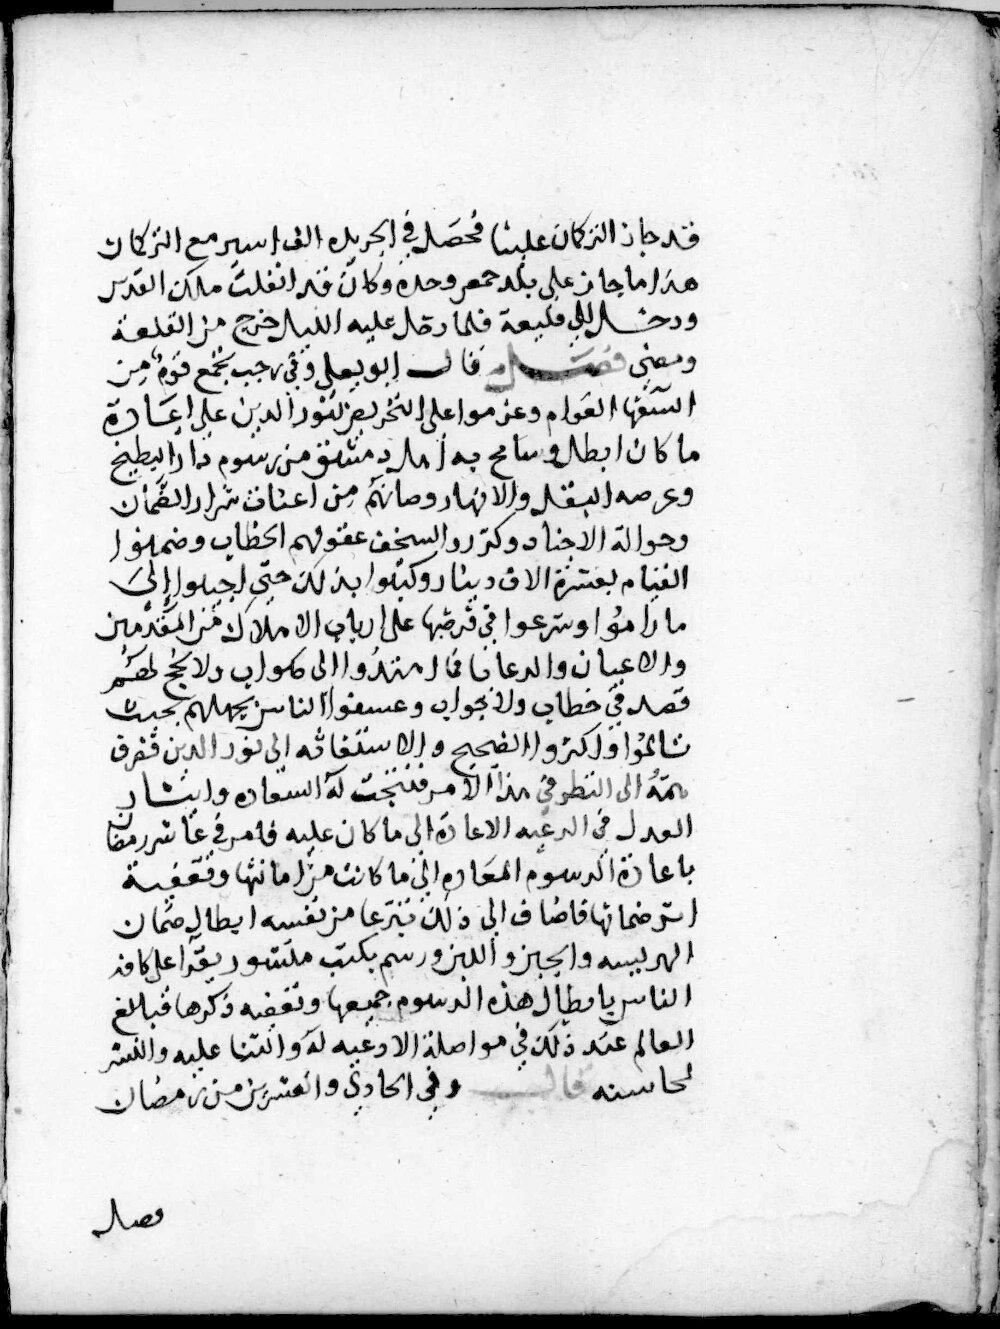 قد جاز التركمان علينا فحصل في الجريده الف اسير مع التركمان
هذا ما جاز على بلد حمص وحده وكان قد انفلت ملك القدس
ودخل الى قليعة فلما دخل عليه الليل خرج من القلعة
ومضى فصل قال ابو يعلى وفي رجب تجمع قوم من
السفها العوام وعزموا على التحريض لنور الدين على اعادة
ما كان ابطل وسامح به اهل دمشق من رسوم دار البطيخ
وعرصه البقل والانهار وصانهم من اعنات شرار الضمان
وحوالة الاجناد وكرروا لسخف عقولهم الخطاب وضمنوا
القيام بعشرة الاف دينار وكتبوا بذلك حتى اجيبوا الى
ما راموا وشرعوا في فرضها على ارباب الاملاك من المقدمين
والاعيان والرعايا فما اهتدوا الى صواب ولا نجح لهم
قصد في خطاب ولا جواب وعسفوا الناس بجهلهم بحيث
تالموا واكثروا الضجيج والاستغاثه الى نور الدين فصرف
همته الى النظر في هذا الامر فنتجت له السعاده وايثار
العدل في الرعيه الاعادة الى ما كان عليه فامر في عاشر رمضان
باعادة الرسوم المعاده الى ما كانت من اماتتها وتعفية
اثر ضمانها فاضاف الى ذلك تبرعا من نفسه ابطال ضمان
الهريسه والجبن واللبن ورسم بكتب منشور يقرا على كافة
الناس بابطال هذه الرسوم جميعها وتعفيه ذكرها فبالغ
العالم عند ذلك في مواصلة الادعيه له والثنا عليه والنشر
لمحاسنه قال وفي الحادي والعشرين من رمضان
وصل